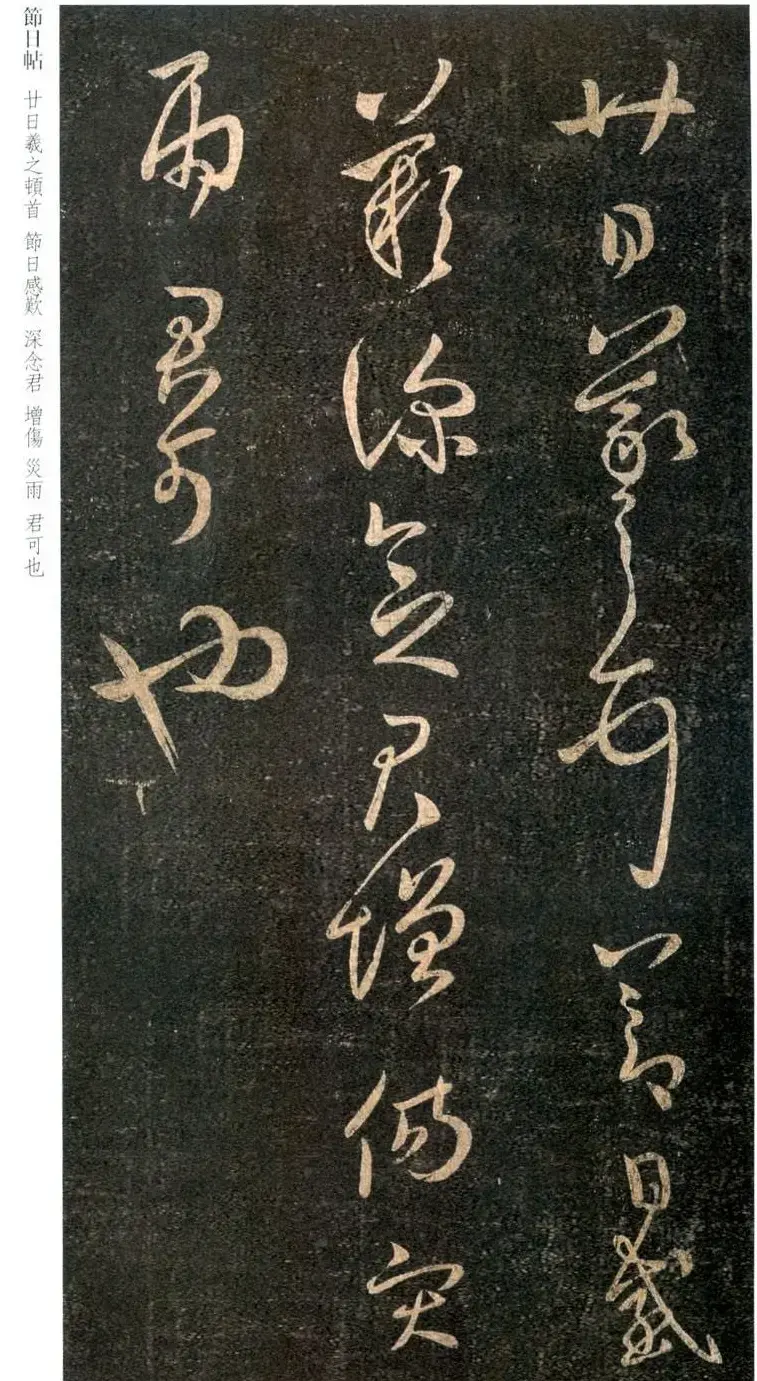 廿日羲之頓首節日感
歎深念君增傷災
雨君可也
節日帖 廿日羲之頓首 節日感歎 深念君 增傷 災雨 君可也